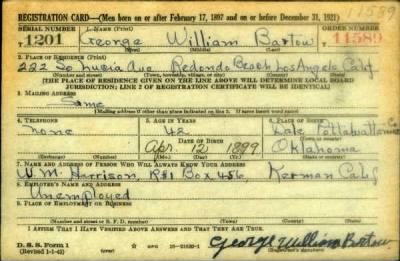 11589
REGISTRATION CARD—(Men born on or after February 17, 1897 and on or before December 31, 1921)
SERIAL NUMBER 1. NAME (Print) ORDER NUMBER
T 1201 George William Bartow 11589
(First) (Middle) (Last)
2. PLACE OF RESIDENCE (Print)
222 So Lucia Ave Redondo Beach Los Angeles Calif
(Number and street) (Town, township, village, or city) (County) (State)
[THE PLACE OF RESIDENCE GIVEN ON THE LINE ABOVE WILL DETERMINE LOCAL BOARD
JURISDICTION; LINE 2 OF REGISTRATION CERTIFICATE WILL BE IDENTICAL]
3. MAILING ADDRESS
Same
[Mailing address if other than place indicated on line 2. If same insert word same]
4. TELEPHONE 5. AGE IN YEARS 6. PLACE OF BIRTH
none 42 Pottawattamie Co
DATE OF BIRTH (Town or county)
Apr. 12 1899 Oklahoma
(Exchange) (Number) (Mo.) (Day) (Yr.) (State or country)
7. NAME AND ADDRESS OF PERSON WHO WILL ALWAYS KNOW YOUR ADDRESS
W.M. Harrison, R#1 Box 456, Kerman Calif
8. EMPLOYER'S NAME AND ADDRESS
Unemployed
9. PLACE OF EMPLOYMENT OR BUSINESS
(Number and street or R. F. D. number) (Town) (County) (State)
I AFFIRM THAT I HAVE VERIFIED ABOVE ANSWERS AND THAT THEY ARE TRUE.
D. S. S. Form 1
(Revised 1-1-42) George William Bartow
(Registrant's signature)